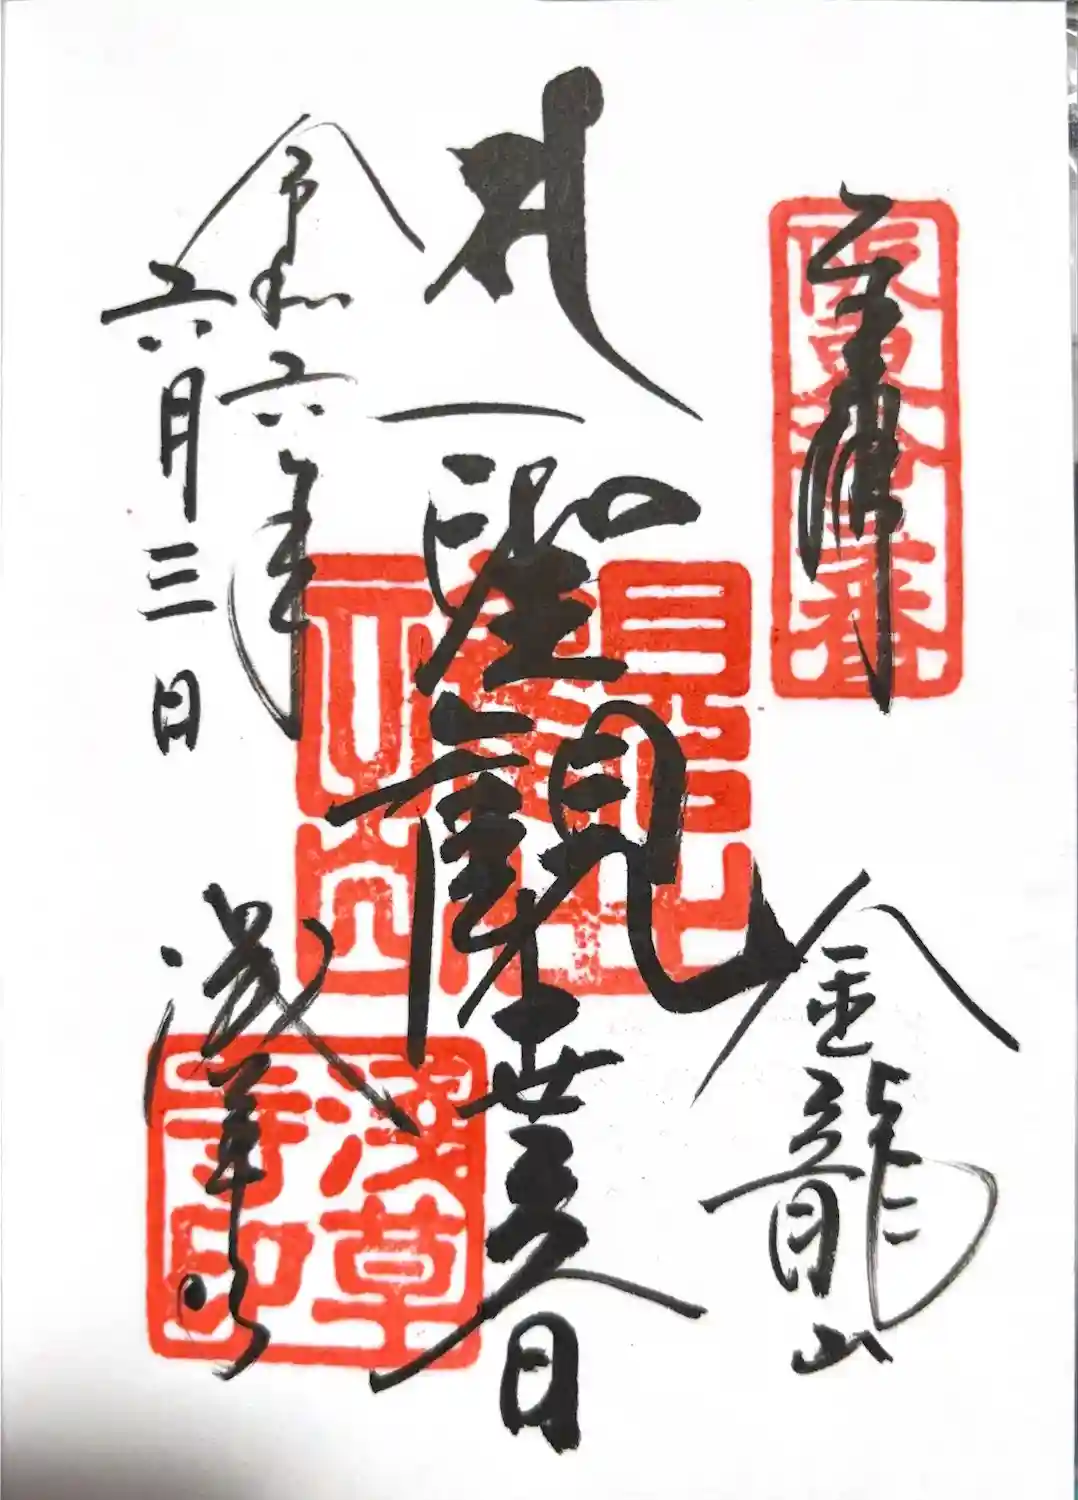 奉拝
坂東十三番
金龍山
聖観世音
淺草寺印
浅草寺
令和六年
六月三日